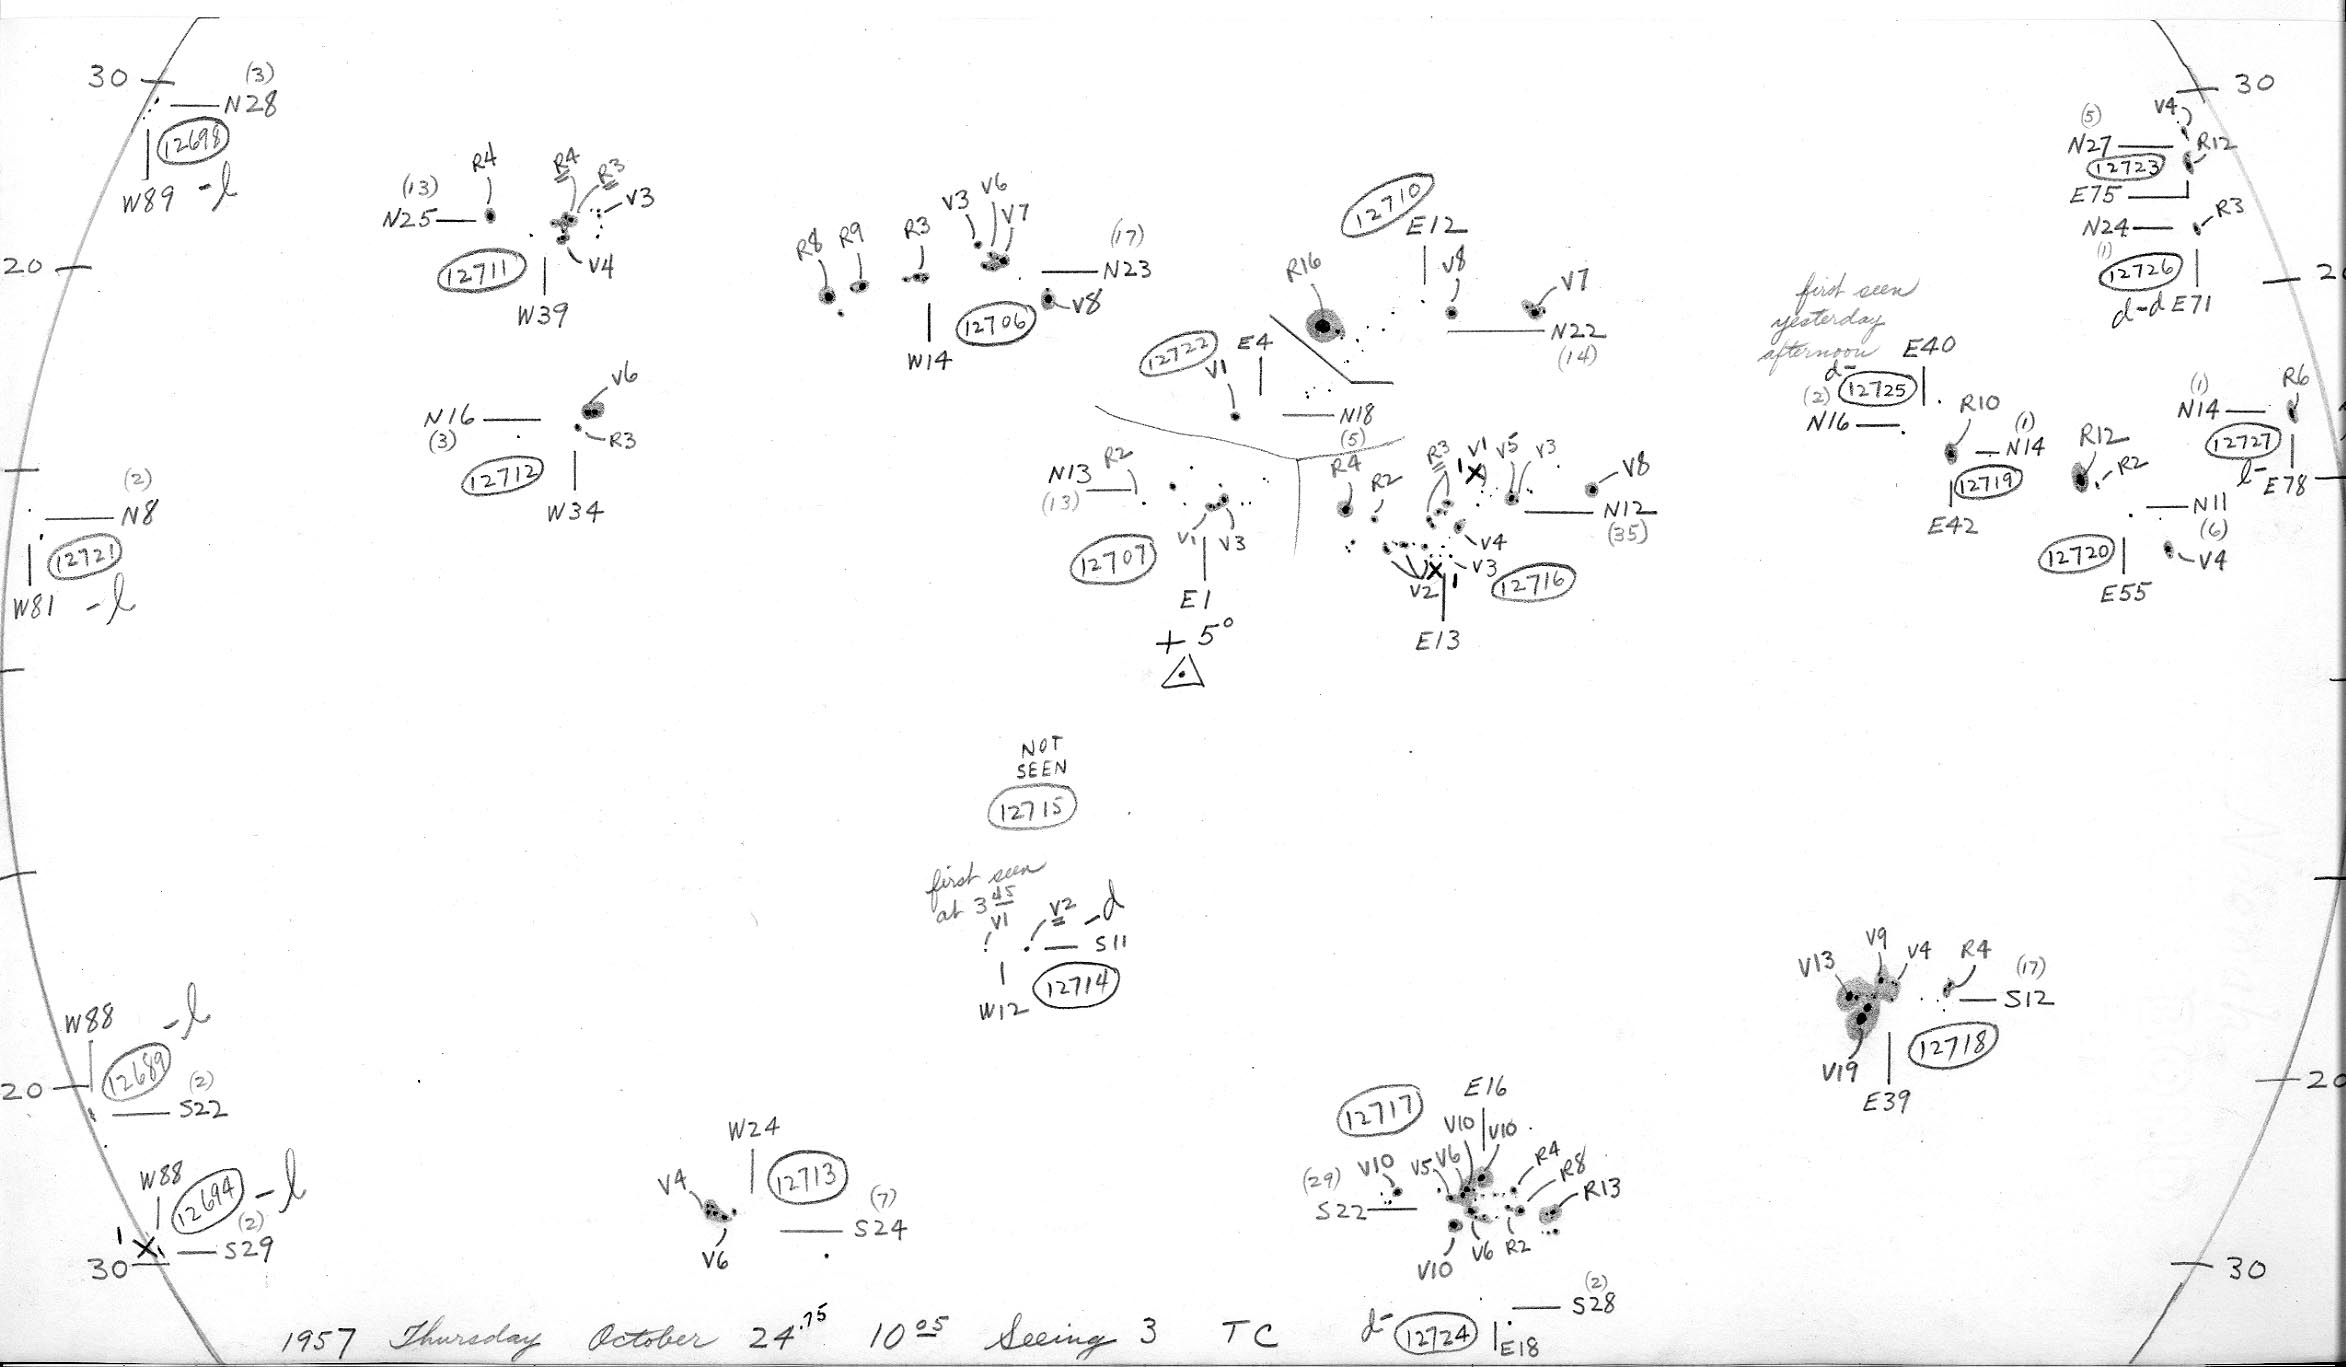 30
(3)
N28
12698
W89 -l
20
(13)
N25
R4
R4
R3
V3
12711
V4
W39
R8
R9
R3
V3
V6
V7
(17)
N23
V8
12706
W14
12710
E12
R16
V8
V7
N22
(14)
30
V4
(5)
N27
R12
12723
E75
N24
R3
(1)
12726
d-d E71
V6
N16
(3)
R3
12712
W34
12722
E4
V1
N18
(5)
first seen
yesterday
afternoon
E40
d-
12725
(2)
N16
R10
(1)
N14
12719
E42
R12
R2
N11
(6)
12720
V4
E55
R6
(1)
N14
12727
l-
E78
(2)
N8
12721
W81 -l
N13
(13)
R2
V1
V3
12707
E1
+5°
R4
R2
R3
1
V1
V5
V3
V8
N12
(35)
V4
V3
V2
1
12716
E13
NOT
SEEN
12715
first seen
at 3 45
V1
V2
-d
S11
12714
W12
V13
V9
V4
R4
(17)
S12
12718
V19
E39
W88 -l
20
12689
(2)
S22
W88
12694 -l
(2)
1
S29
30
W24
12713
V4
(7)
S24
V6
12717
E16
V10
V10
(29)
V10
V5
V6
R4
R8
R13
S22
V10
V6
R2
20
30
(2)
S28
d-
12724
E18
1957 Thursday October 24.75 10 05 Seeing 3 TC